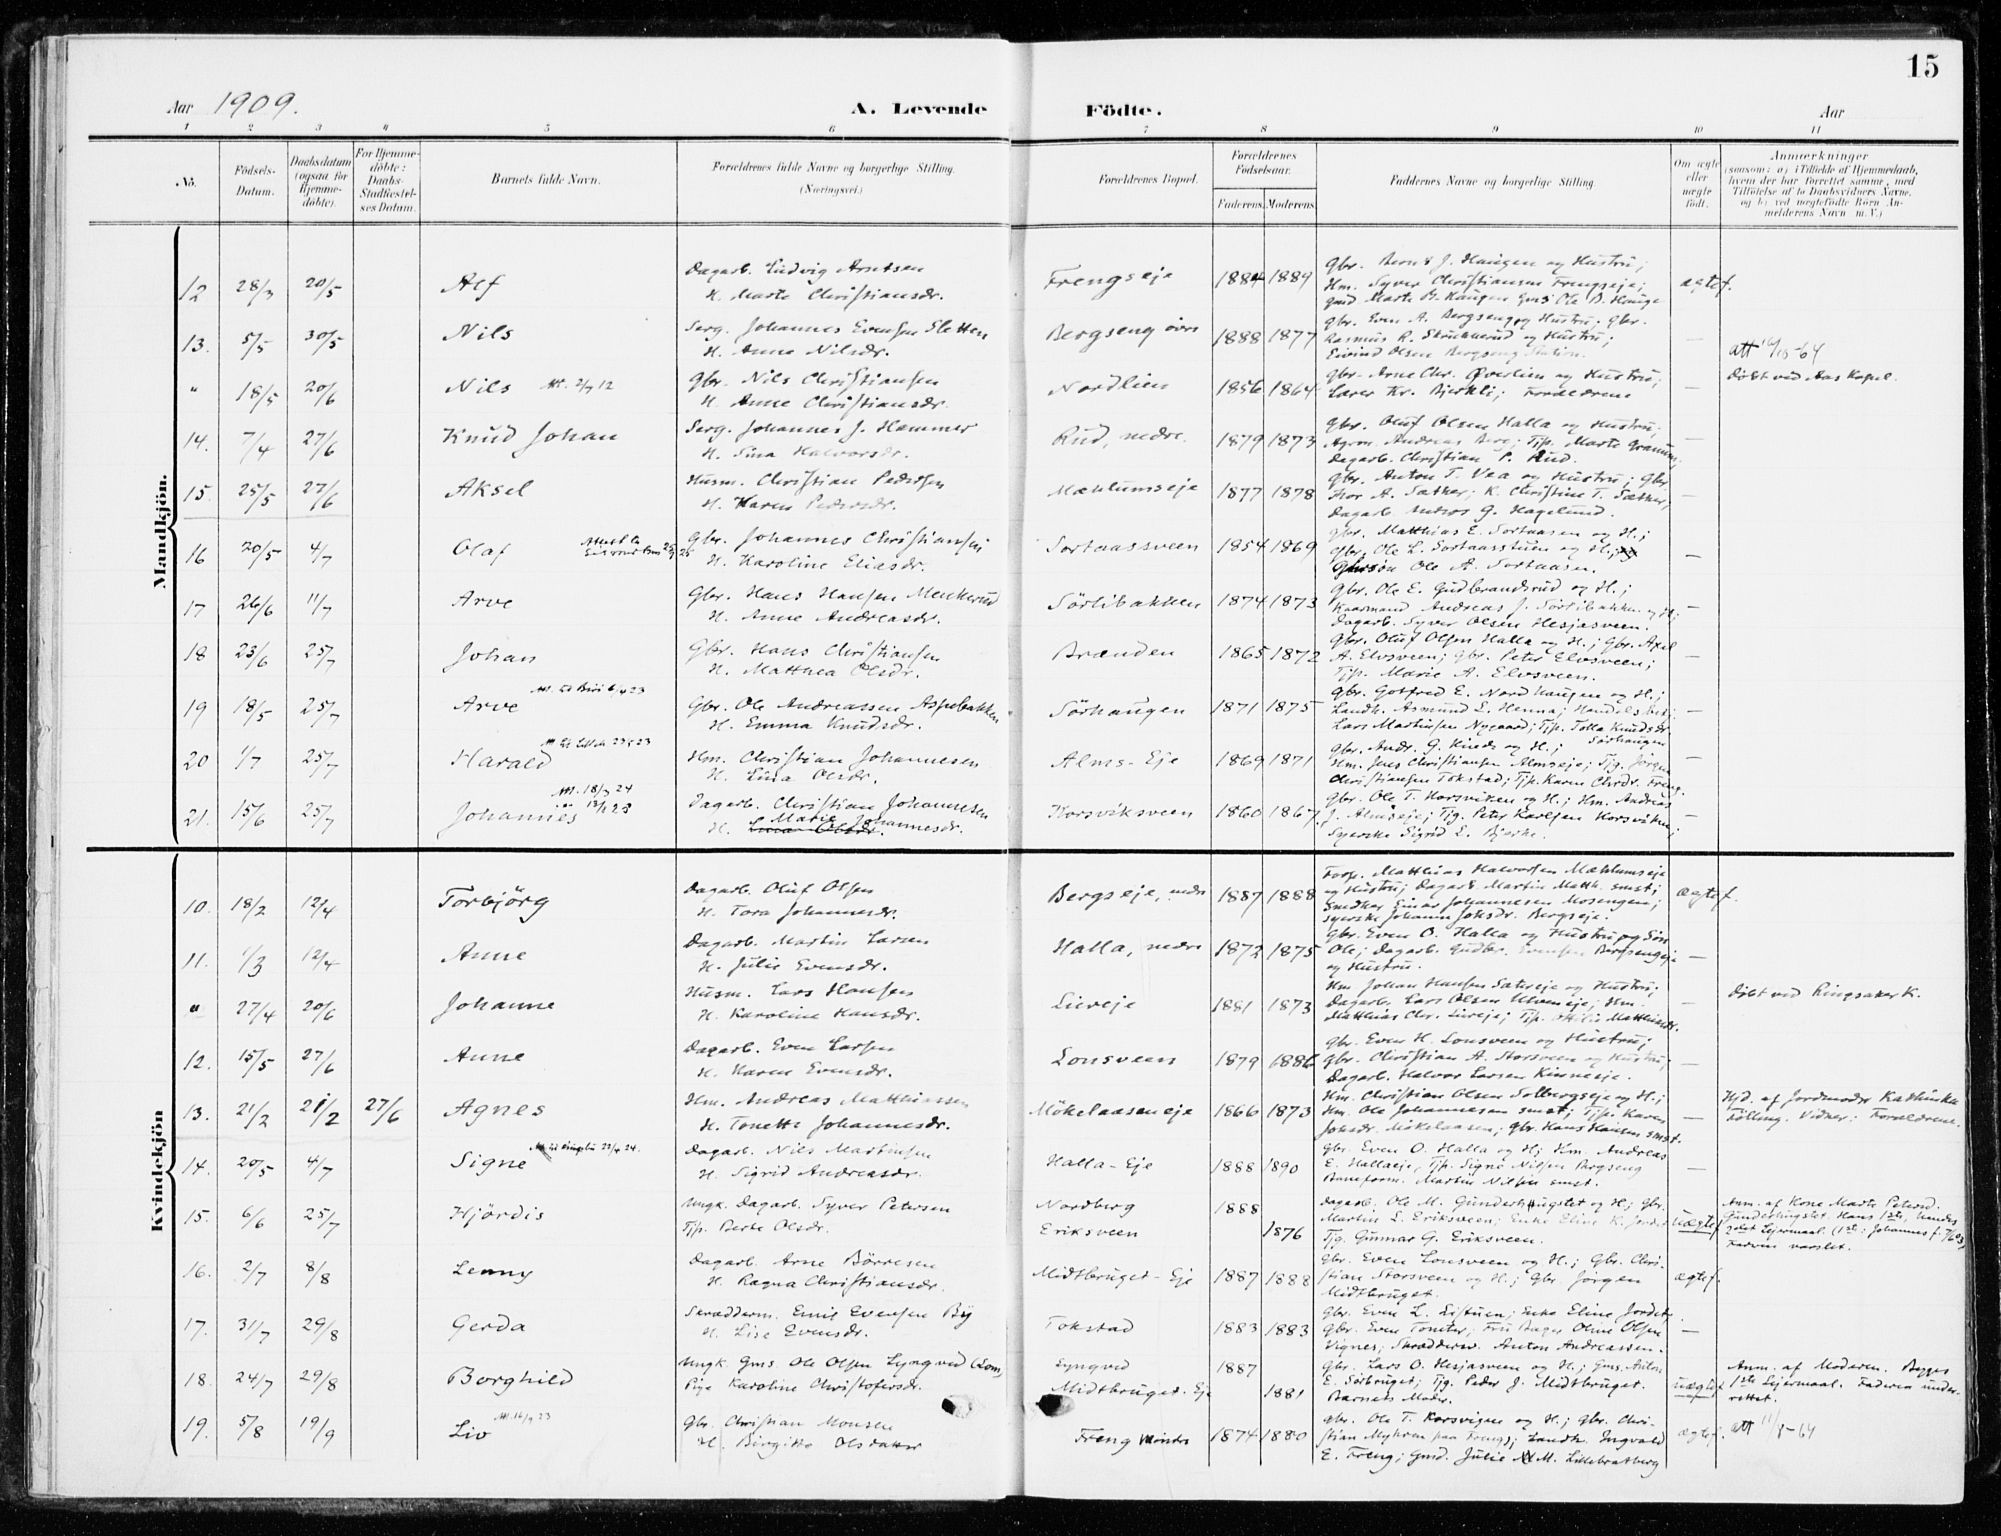 15
Aar 1909. A. Levende Födte. Aar
1 2 3 4 5 6 7 8 9 10 11
No. Födsels-Datum. Daabsdatum (ogsaa for Hjemme-döbte). For Hjemme-döbte: Daabs-Stadfæstel-ses Datum. Barnets fulde Navn. Forældrenes fulde Navne og borgerlige Stilling. (Næringsvei.) Forældrenes Bopæl. Forældrenes Födselsaar. Faderens. Moderens. Faddernes Navne og borgerlige Stilling. Om ægte eller uægte födt. Anmærkninger
(saasom: a) i Tilfælde af Hjemmedaab,
hvem der har forrettet samme, med
Tilföielse af to Daabsvidners Navne,
og b) ved uægtefödte Börn An-
melderens Navn m.V.)
Mandkjön.
12 28/3 20/5 Alf Dagarb. Ludvig Arntsen Frengseje 1884 1889 Gbr. Bernt J. Haugen og Hustru; ægtef.
H. Marte Christiansdr. Hm. Syver Christiansen Frengseje;
13. 5/5 30/5 Nils Serg. Johannes Evensen Sletten Bergseng övre 1888 1877 Gbr. Even A. Bergseng og Hustru; Gbr. —
H. Anne Nilsdr. Rasmus R. Skrukkerud og Hustru;
Eivind Olsen Bergseng Station. att 14/10-64
" 18/5 20/6 Nils Att. 2/7 12 Gbr. Nils Christiansen Nordlien 1856 1864 Gbr. Arne Chr. Överlien og Hustru; — Döbt ved Aas Kapel.
H. Anne Christiansdr. Lærer Kr. Bjerkli; Forældrene
14. 7/4 27/6 Knud Johan Serg. Johannes J. Hammer Rud, nedre. 1879 1873 Gbr. Oluf Olsen Halla og Hustru; —
H. Sina Halvorsdr. Agron. Andreas Berg; Tjp. Marte Granum;
Dagarb. Christian P. Rud.
15 25/5 27/6 Aksel Husm. Christian Pedersen Mæhlumseje 1877 1878 Gbr. Anton T. Vea og Hustru; Gbr. —
H. Karen Pedersdr. Thor A. Sæther; K. Christine T. Sæther;
Dagarb. Anders G. Hagelund.
16 20/5 4/7 Olaf Gbr. Johannes Christiansen Sortaassveen 1854 1869 Gbr. Matthias E. Sortaasen og H.; —
H. Karoline Eliasdr. Gbr. Ole L. Sortaasstuen og H.;
Gbrsön Ole A. Sortaasen.
17 26/6 11/7 Arve Gbr. Hans Hansen Menkerud Sörlibakken 1874 1873 Gbr. Ole E. Gudbrandsrud og H.; —
H. Anne Andreasdr. Kaarmand Andreas J. Sörlibakken og H;
Dagarb. Syver Olsen Hesjasveen.
18 23/6 25/7 Johan Gbr. Hans Christiansen Brænden 1865 1872 Gbr. Oluf Olsen Halla og H.; Gbr. Axel —
H. Matthea Olsdr. A. Elvsveen; Gbr. Peter Elvsveen;
Tjp. Marie A. Elvsveen.
19 18/5 25/7 Arve Att. til Biri 6/4 23 Gbr. Ole Andreassen Aspebakken Sörhaugen 1871 1875 Gbr. Gotfred E. Nordhaugen og H.; —
H. Emma Knudsdr. Landh. Asmund L. Henna; Handelsbet.;
Lars Martinsen Nygaard; Tjp. Tolla Knudsdr.
Sörhaugen
20 1/7 25/7 Harald Hm. Christian Johannesen Alms-Eje 1869 1871 Gbr. Andr. G. Kinds og H.; —
H. Lina Olsdr. Hm. Jens Christiansen Almseje; Tjg. Jörgen
Christiansen Tokstad; Tjp. Karen Chrdr. Freng.
21. 15/6 25/7 Johannes Att. 18/3 24 Dagarb. Christian Johannesen Korsviksveen 1860 1867 Gbr. Ole T. Korsviken og H.; Hm. Andreas —
H. Marie Johannesdr. J. Almseje; Tjg. Peter Karlsen Korsviken;
Syerske Sigrid E. Bjerke.
Kvindekjön
10. 18/2 12/4 Torbjörg Dagarb. Oluf Olsen Bergseje, nedre 1887 1888 Forp. Matthias Halvorsen Mæhlumseje ægtef.
H. Tora Johannesdr. og Hustru; Dagarb. Martin Matth. smst;
Snedker Einar Johannesen Mosengen;
Syerske Johanne Johsdr. Bergseje.
11. 1/3 12/4 Anne Dagarb. Martin Larsen Halla, nedre 1872 1875 Gbr. Even O. Halla og Hustru og Sön —
H. Julie Evensdr. Ole; Dagarb. Gudbr. Evensen Bergsengeje
og Hustru.
" 27/4 20/6 Johanne Husm. Lars Hansen Liereje 1881 1873 Hm. Johan Hansen Sætereje og Hustru; — Döbt ved Ringsaker K.
H. Karoline Hansdr. Dagarb. Lars Olsen Ulveneje; Hm.
Matthias Chr. Liereje; Tjp. Ottilie Matthiasdr.
12. 15/5 27/6 Anne Dagarb. Even Larsen Lonsveen 1879 1886 Gbr. Even H. Lonsveen og Hustru; —
H. Karen Evensdr. Gbr. Christian A. Storsveen og Hustru;
Dagarb. Halvor Larsen Kinneeje.
13. 21/2 21/2 27/6 Agnes Hm. Andreas Matthiassen Mökelaaseneje 1866 1873 Hm. Christian Olsen Solbergseje og H.; — Hjd. af Jordmoder Kathinka
H. Tonette Johannesdr. Hm. Ole Johannesen smst; Tjp. Karen Fölling. Vidner: Forældrene.
Johsdr. Mökelaasen; Gbr. Hans Hansen smst.
14. 20/5 4/7 Signe Dagarb. Nils Martinsen Halla-Eje 1888 1890 Gbr. Even O. Halla og H; Hm. Andreas —
H. Sigrid Andreasdr. E. Hallaeje; Tjp. Signe Nilsen Bergseng
Baneform. Martin Nilsen smst.
15. 6/6 25/7 Hjördis Ungk. Dagarb. Syver Petersen Nordberg 1888 Dagarb. Ole M. Gunderhugstet og H; Gbr. uægtef Anm. af Kone Marte Petersd.
Tjp. Berte Olsdr. Eriksveen 1876 Martin L. Eriksveen; Enke Eline K. Jordet Gunderhugstet. Hans 1ste, hendes
Tjg. Gunnar G. Eriksveen. 2det Lejermaal. (1ste: Johannes f. 7/6 03)
Faderen varslet.
16. 2/7 8/8 Lenny Dagarb. Arne Börresen Midtbruget-Eje 1887 1888 Gbr. Even Lonsveen og H.; Gbr. Chri- ægtef.
H. Ragna Christiansdr. stian Storsveen og H.; Gbr. Jörgen
Midtbruget.
17. 31/7 29/8 Gerda Skrædderm. Emil Evensen By Tokstad 1883 1883 Gbr. Even L. Listuen; Enke Eline Jordet; —
H. Lise Evensdr. Gbr. Even Tomter; Fru Bager Oline Olsen
Vignes; Skrædderm. Anton Andreassen.
18. 24/7 29/8 Borghild Ungk. Gms. Ole Olsen Lyngved (Lom) Lyngved 1887 Gbr. Lars O. Hesjasveen og H.; Gms. Anton uægtef Anm. af Moderen. Begges
Pige Karoline Christofersdr. Midtbruget-Eje 1881 E. Sörbruget; Tjg. Peder J. Midtbruget. 1ste Lejermaal. Faderen under-
Barnets Moder. rettet.
19. 5/8 19/9 Liv Att. 16/9 23 Gbr. Christian Monsen Freng Mindre 1874 1880 Gbr. Ole T. Korsvigen og H.; Gbr. Chri- ægtef. att 11/8-64
H. Birgitte Olsdatter stian Myhren paa Freng; Landh. Ingvald
E. Freng; Gmd. Julie M. Lillebratberg